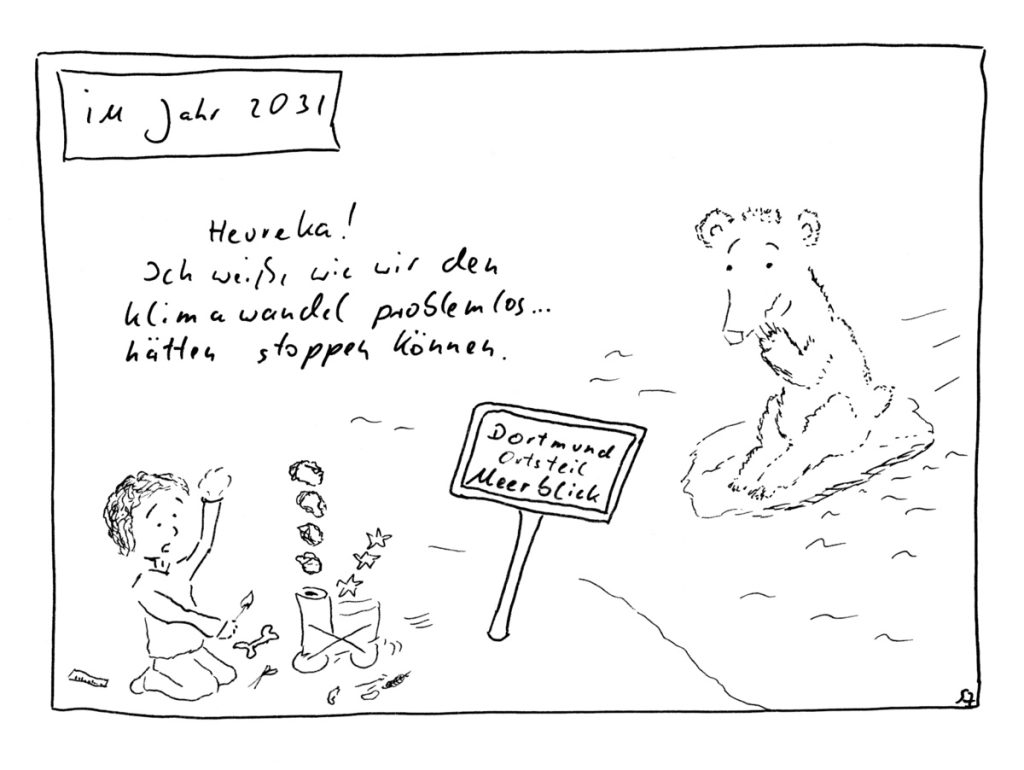 im Jahr 2031
Heureka!
Ich weiß, wie wir den
Klimawandel problemlos...
hätten stoppen können.
Dortmund
Ortsteil
Meerblick